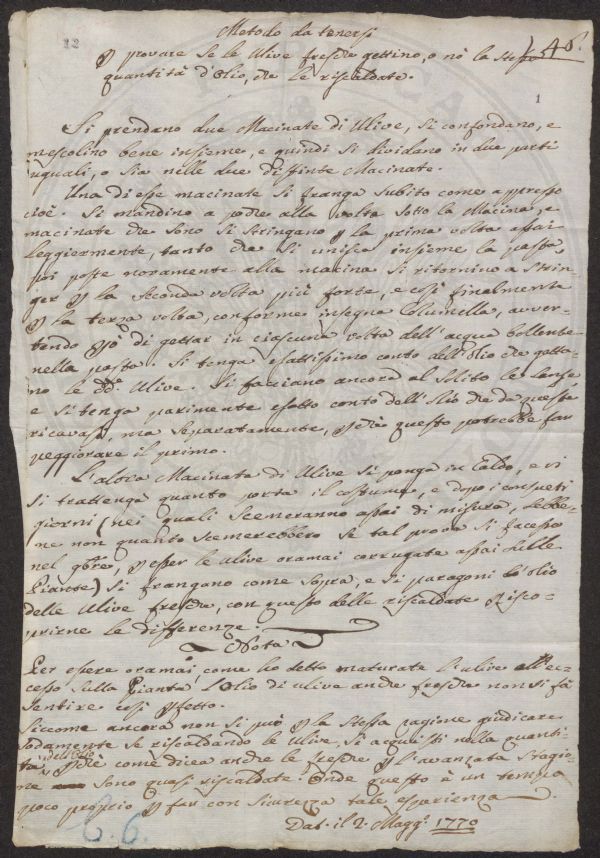 22
Metodo da tenersi
46.
p provare se le Ulive fresche gettino, o nò la stessa
quantità d'Olio, che le riscaldate.
1
Si prendano due Macinate di Ulive, si confondano, e
mescolino bene insieme, e quindi si dividano in due parti
uguali, o sia nelle due distinte Macinate.
Una di esse macinate si franga subito come appresso
cioè. Si mandino a poche alla volta sotto la Macina, e
macinate che sono si stringano p la prima volta assai
leggiermente, tanto che si unisca insieme la pasta,
poi poste novamente alla macina si ritornino a strin-
ger p la seconda volta più forte, e così finalmente
p la terza volta, conforme insegna Columella, avver-
tendo però di gettar in ciascuna volta dell'acqua bollente
nella pasta. Si tenga esattissimo conto dell'Olio che getta-
no le dde Ulive. Si facciano ancora al solito le
e si tenga parimente esatto conto dell'Olio che da queste
ricavasi, ma separatamente, pchè questo potrebbe far
peggiorare il primo.
L'altra Macinata di Ulive si ponga in Caldo, e vi
si trattenga quanto porta il costume, e dopo i consueti
giorni (nei quali scemeranno assai di misura, sebbe-
ne non quanto scemerebbero se tal prova si facesse
nel , p esser le Ulive oramai corrugate assai sulle
Piante) si frangano come sopra, e si paragoni l'olio
delle Ulive fresche, con questo delle riscaldate p isco-
prirne le differenze.
Nota
Per essere oramai, come ho detto maturate l'ulive all'ec-
cesso sulla Pianta, l'Olio di ulive anche fresche non si fà
sentire così pfetto.
Siccome ancora non si può p la stessa ragione giudicare
sodamente se riscaldando le Ulive, si acquisti nella quanti-
tà dell'olio pchè come dicea anche le fresche p l'avanzata stagio-
ne sono quasi riscaldate. Onde questo è un tempo
poco propicio p far con sicurezza tale esperienza.
Dat. il 2. Magg. 1770
C. 6.